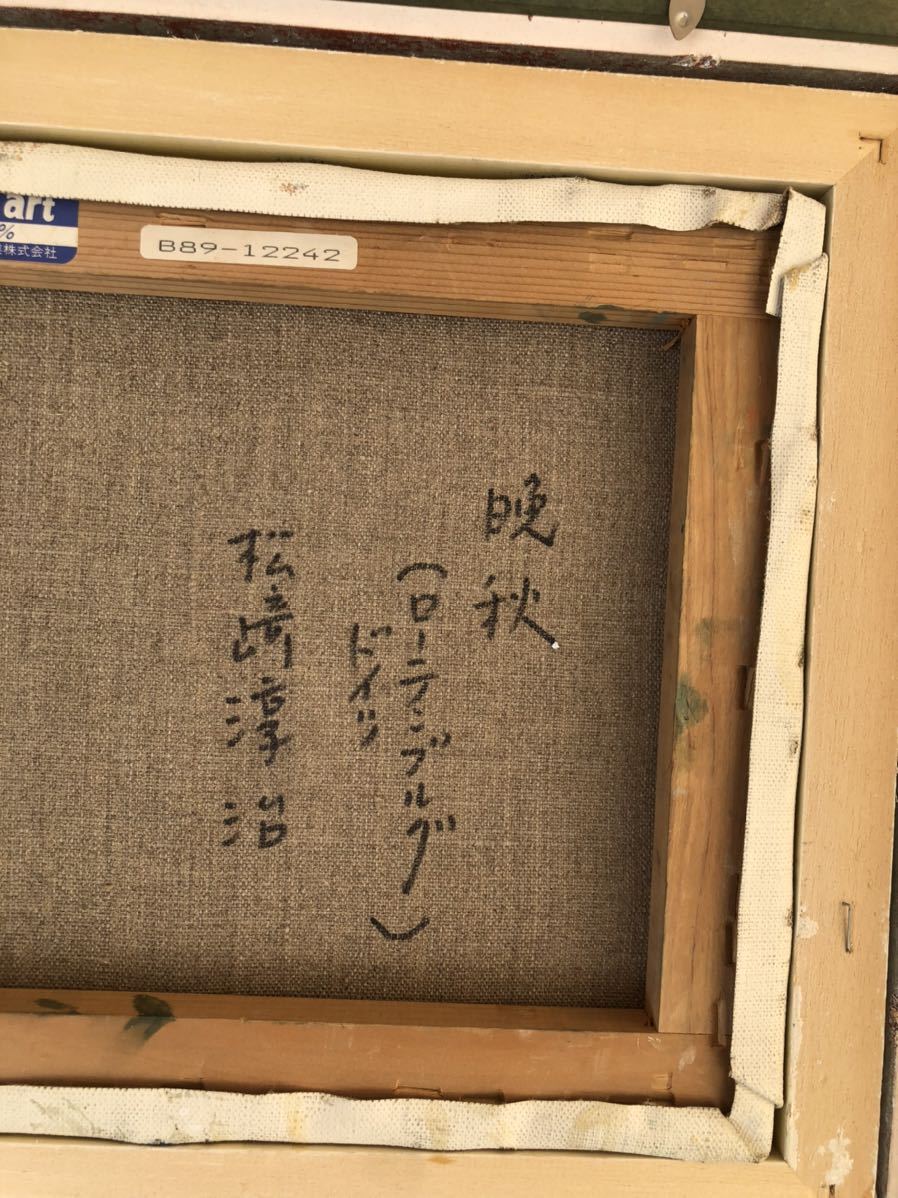 art
%
株式会社
B89-12242
晩秋
(ローテンブルグ)
ドイツ
松﨑淳治